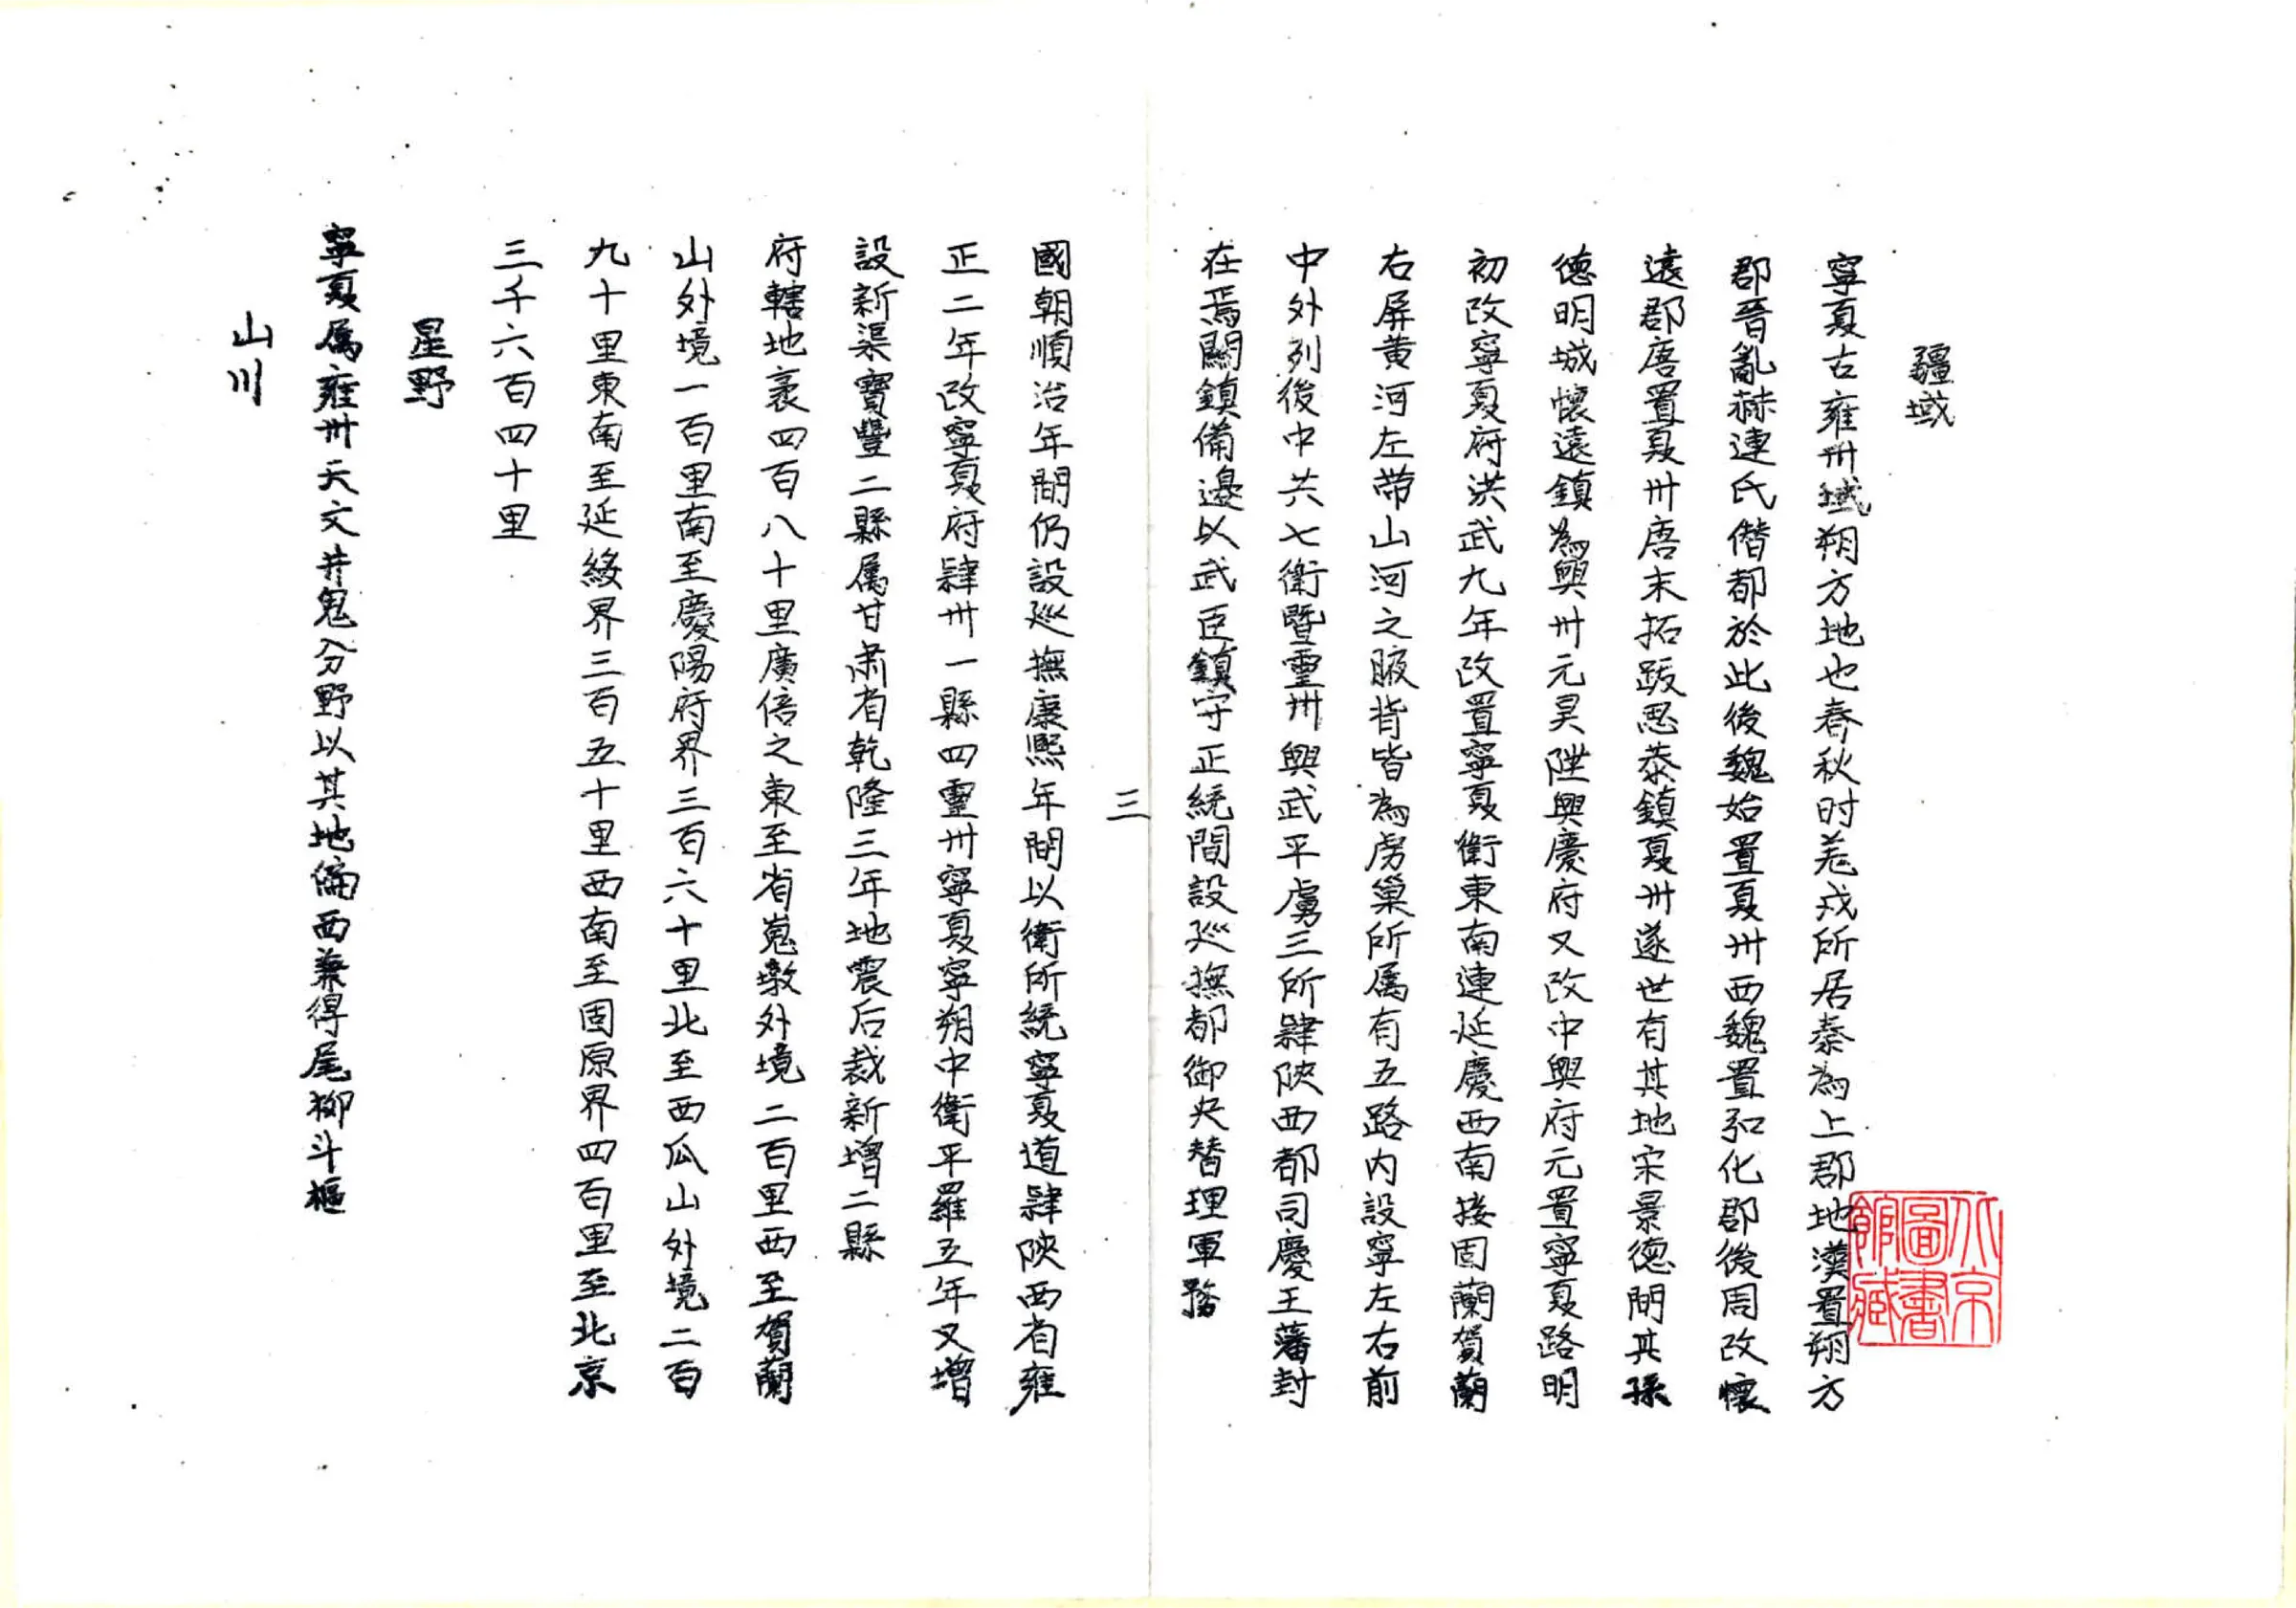 疆域
寧夏古雍卅域朔方地也春秋时羌戎所居秦為上郡地漢置朔方
郡晉亂赫連氏僭都於此後魏始置夏卅西魏置弘化郡後周改懷
遠郡唐置夏卅唐末拓跋思恭鎮夏卅遂世有其地宋景德間其孫
德明城懷遠鎮為興卅元昊陞興慶府又改中興府元置寧夏路明
初改寧夏府洪武九年改置寧夏衛東南連延慶西南接固蘭賀蘭
右屏黄河左带山河之腋背皆為虏巢所属有五路内設寧左右前
中外列後中共七衛暨靈卅興武平虜三所肄陝西都司慶王藩封
在焉關鎮備邊以武臣鎮守正統間設巡撫都御央替理軍務
三
國朝順治年間仍設巡撫康熙年間以衛所統寧夏道肄陝西省雍
正二年改寧夏府肄卅一縣四靈卅寧夏寧朔中衛平羅五年又增
設新渠寶豐二縣属甘肃省乾隆三年地震后裁新增二縣
府轄地袤四百八十里廣倍之東至省嵬墩外境二百里西至賀蘭
山外境一百里南至慶陽府界三百六十里北至西瓜山外境二百
九十里東南至延綏界三百五十里西南至固原界四百里至北京
三千六百四十里
星野
寧夏属雍卅天文井鬼分野以其地偏西兼得尾柳斗樞
山川
北京圖書館藏